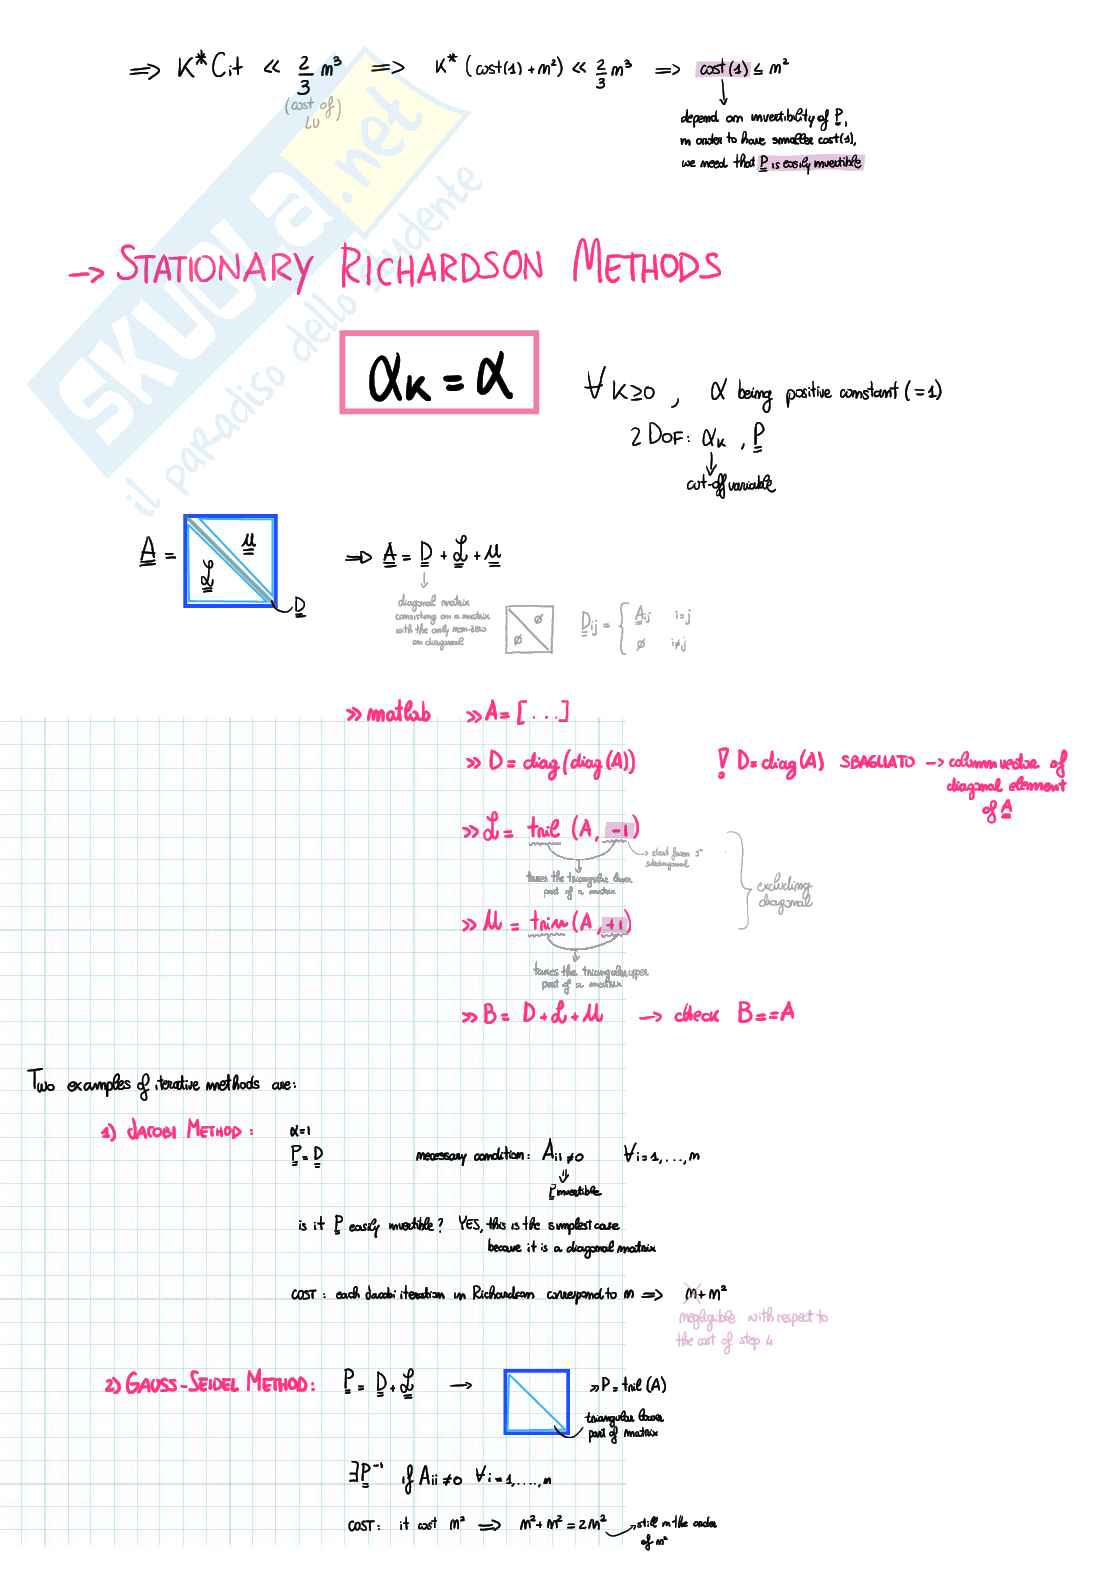 ⇒ K* Cit ≪ 2/3 n³ ⇒ K* (cost(1) + n²) ≪ 2/3 n³ ⇒ cost(1) ≤ n²
(cost of LU)
depend on invertibility of P,
in order to have smaller cost(1),
we need that P is easily invertible
SKUOLA.net
il paradiso dello studente
→ STATIONARY RICHARDSON METHODS
αK = α
∀ K≥0 , α being positive constant (=1)
2 DOF: αK , P
cut-off variable
A = U
L
D
⇒ A = D + L + U
diagonal matrix
consisting on a matrix
with the only non-zero
on diagonal
Ø Ø
Dij = { Aij i=j
Ø i≠j
>> matlab >> A = [ ... ]
>> D = diag(diag(A)) ! D=diag(A) SBAGLIATO → column vector of
diagonal element
of A
>> L = tril (A, -1)
→ start from 1°
subdiagonal
takes the triangular lower
part of a matrix
excluding
diagonal
>> U = triu (A, +1)
takes the triangular upper
part of a matrix
>> B = D + L + U → check B==A
Two examples of iterative methods are:
1) JACOBI METHOD: α=1
P = D necessary condition: Aii ≠0 ∀i=1,...,n
P invertible
is it P easily invertible? YES, this is the simplest case
because it is a diagonal matrix
COST: each Jacobi iteration in Richardson correspond to n ⇒ n + n²
negligible with respect to
the cost of step 4
2) GAUSS-SEIDEL METHOD: P = D + L → >> P = tril (A)
triangular lower
part of matrix
∃P⁻¹ if Aii ≠0 ∀i=1,....,n
COST: it cost n² ⇒ n² + n² = 2n² → still in the order
of n²